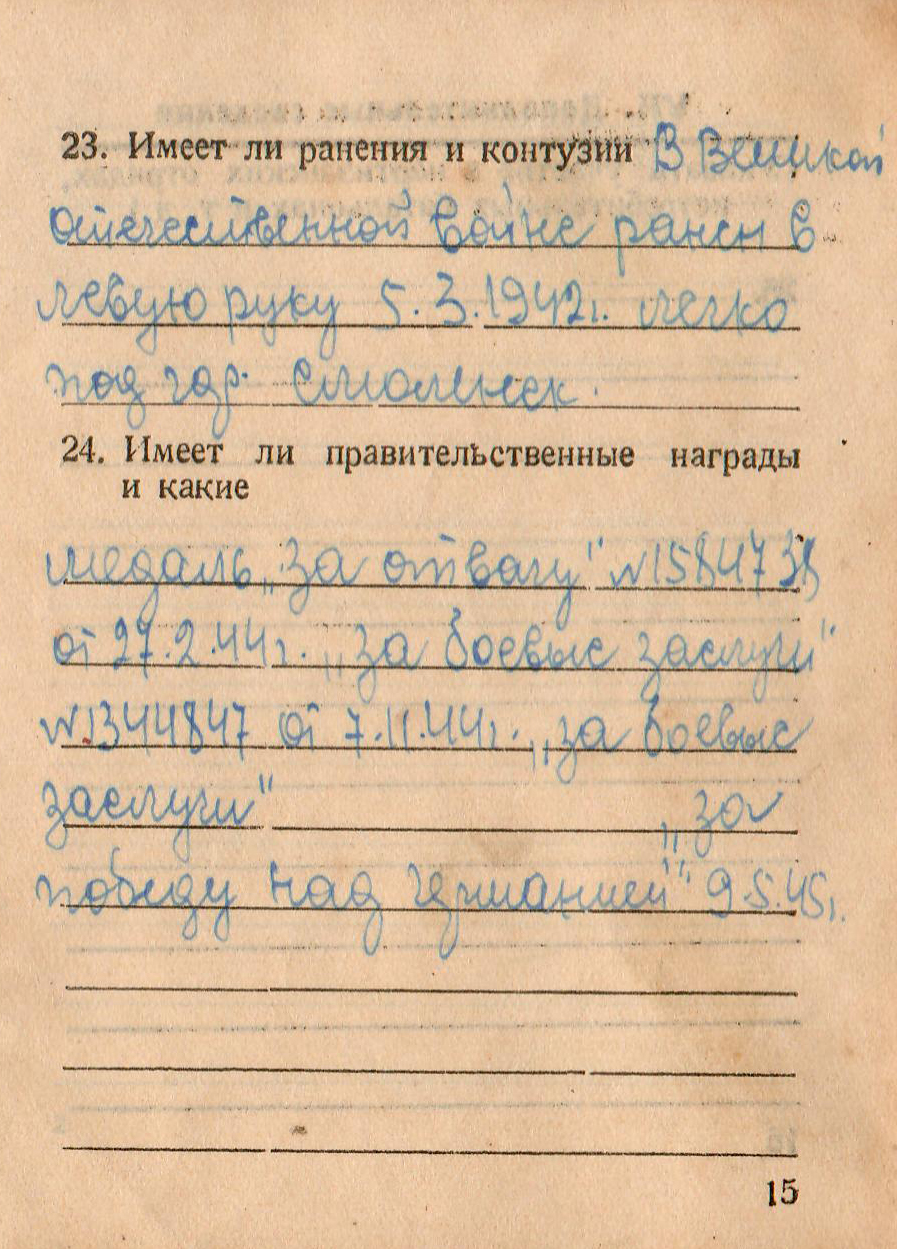 23. Имеет ли ранения и контузии В Великой
отечественной войне ранен в
левую руку 5.3.1942г. легко
под гор. Смоленск.
24. Имеет ли правительственные награды
и какие
медаль „за отвагу" №1584738
от 27.2.44г. „за боевые заслуги"
№1344847 от 7.11.44г. „за боевые
заслуги" „за
победу над германией" 9.5.45г.
15